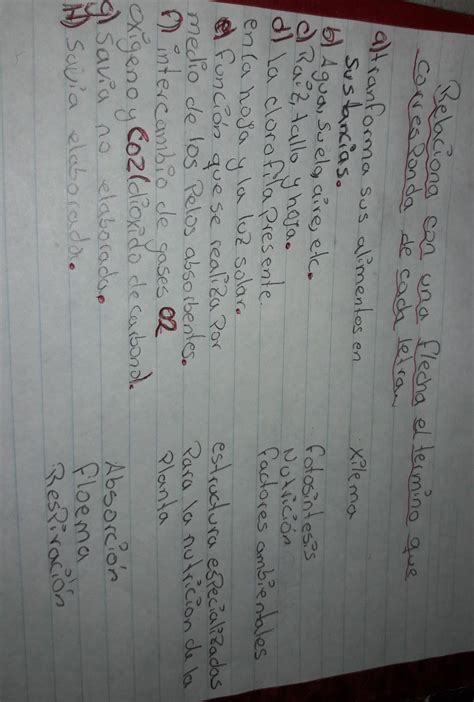 Relaciona con una flecha el termino que
corresponda de cada letra.
a) tranforma sus alimentos en
sustancias.
xilema
b) Agua, suelo, aire, etc.
c) Raiz, tallo y hoja.
fotosintesis
Nutrición
d) La clorofila presente
en la hoja y la luz solar.
factores ambientales
e) función que se realiza por
medio de los pelos absorbentes.
estructura especializadas
Para la nutricion de la
Planta
f) intercambio de gases O2
oxigeno y CO2 (dioxido de carbono).
g) Savia no elaborada.
H) Savia elaborada.
Absorción
floema
Respiración